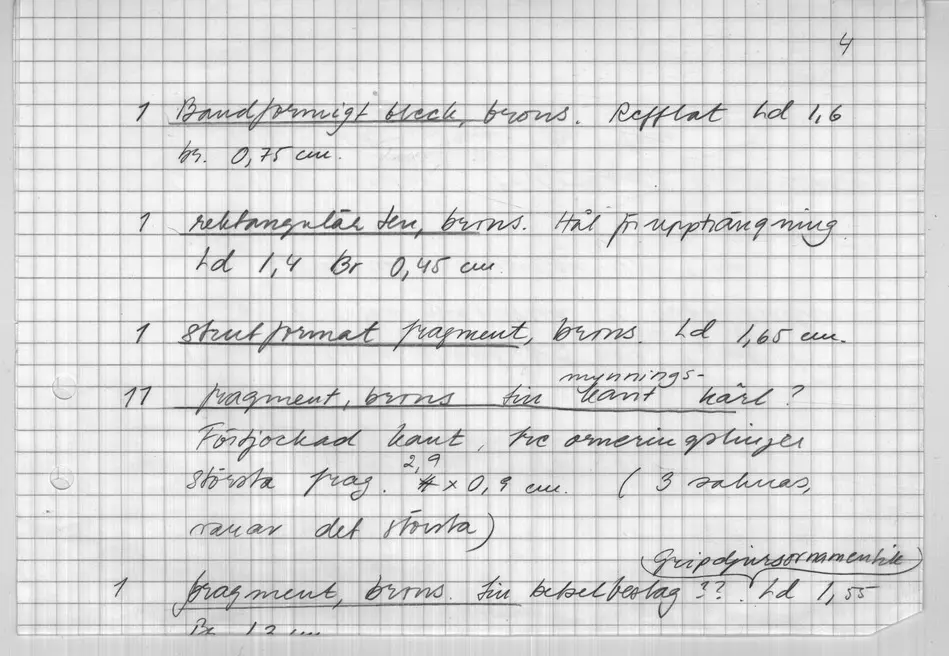 4
1 Bandformigt bleck, brons. Refflat Ld 1,6
br. 0,75 cm.
1 rektangulär ten, brons. Hål för upphängning
Ld 1,4 Br 0,45 cm
1 Strutformat fragment, brons. Ld 1,65 cm.
mynnings-
11 fragment, brons till kant kärl?
Förtjockad kant, tre orneringslinjer
2,9
största frag. x 0,9 cm. (3 saknas,
varav det största)
Gripdjursornamentik
1 fragment, brons. till betselbeslag ??. Ld 1,55
Br 1,3 cm